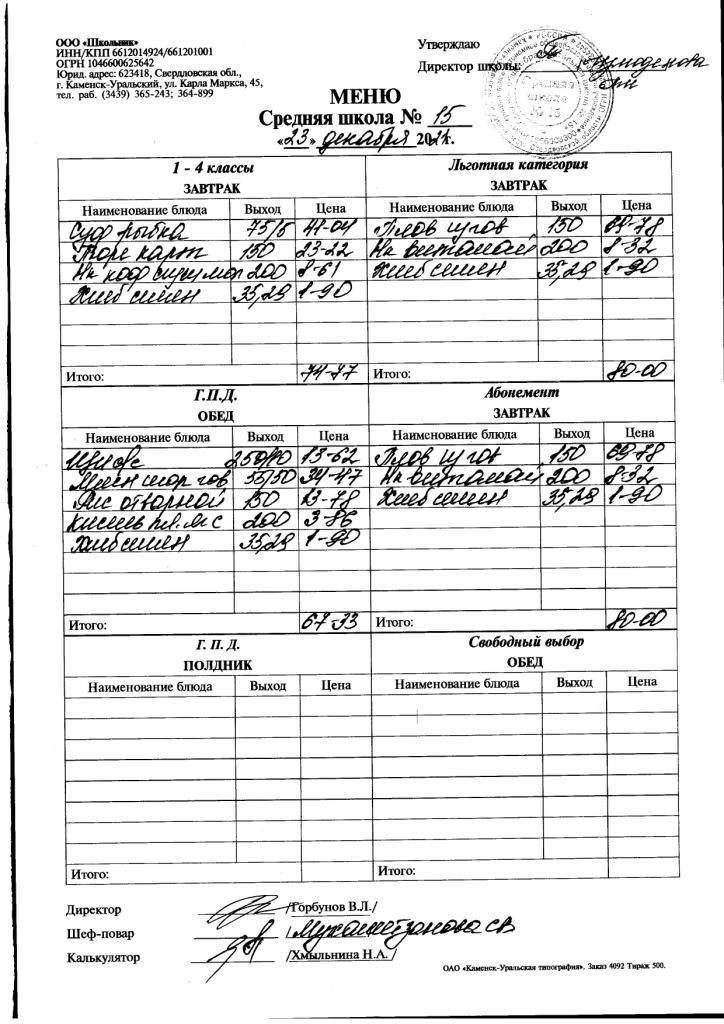 ООО «Школьник»
ИНН/КПП 6612014924/661201001
ОГРН 1046600625642
Юрид. адрес: 623418, Свердловская обл.,
г. Каменск-Уральский, ул. Карла Маркса, 45,
тел. раб. (3439) 365-243; 364-899
Утверждаю
Директор школы:
МЕНЮ
Средняя школа № 15
«23» декабря 2021г.
1 - 4 классы
ЗАВТРАК
Наименование блюда Выход Цена
Суф рыбка 75/5
Пюре карт 150 23-22
200 8-61
Хлеб 35,29 1-90
Итого: 74-77
Льготная категория
ЗАВТРАК
Наименование блюда Выход Цена
Плов 150 69-78
Нк витамой 200 8-32
Хлеб 35,29 1-90
Итого: 80-00
Г.П.Д.
ОБЕД
Наименование блюда Выход Цена
13-62
55/50 34-17
Рис отварной 150 13-78
Кисель пл. яг с 200 3-86
Хлеб 35,29 1-90
Итого: 67-33
Абонемент
ЗАВТРАК
Наименование блюда Выход Цена
Плов 150 69-78
Нк витамой 200 8-32
Хлеб 35,29 1-90
Итого: 80-00
Г. П. Д.
ПОЛДНИК
Наименование блюда Выход Цена
Итого:
Свободный выбор
ОБЕД
Наименование блюда Выход Цена
Итого:
Директор /Горбунов В.Л./
Шеф-повар / Мухаметзянова СВ
Калькулятор /Хмыльнина Н.А. /
ОАО «Каменск-Уральская типография». Заказ 4092 Тираж 500.